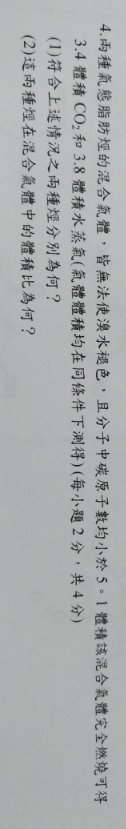 4.兩種氣態脂肪烴的混合氣體，皆無法使溴水褪色，且分子中碳原子數均小於 5。1 體積該混合氣體完全燃燒可得
3.4 體積 CO₂ 和 3.8 體積水蒸氣(氣體體積均在同條件下測得)(每小題 2 分，共 4 分)
(1)符合上述情況之兩種烴分別為何？
(2)這兩種烴在混合氣體中的體積比為何？